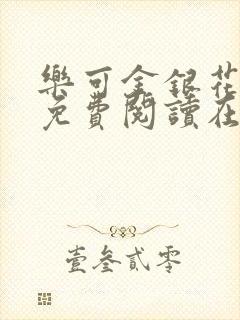 樂可金銀花
免費閱讀在
壹叁貳零